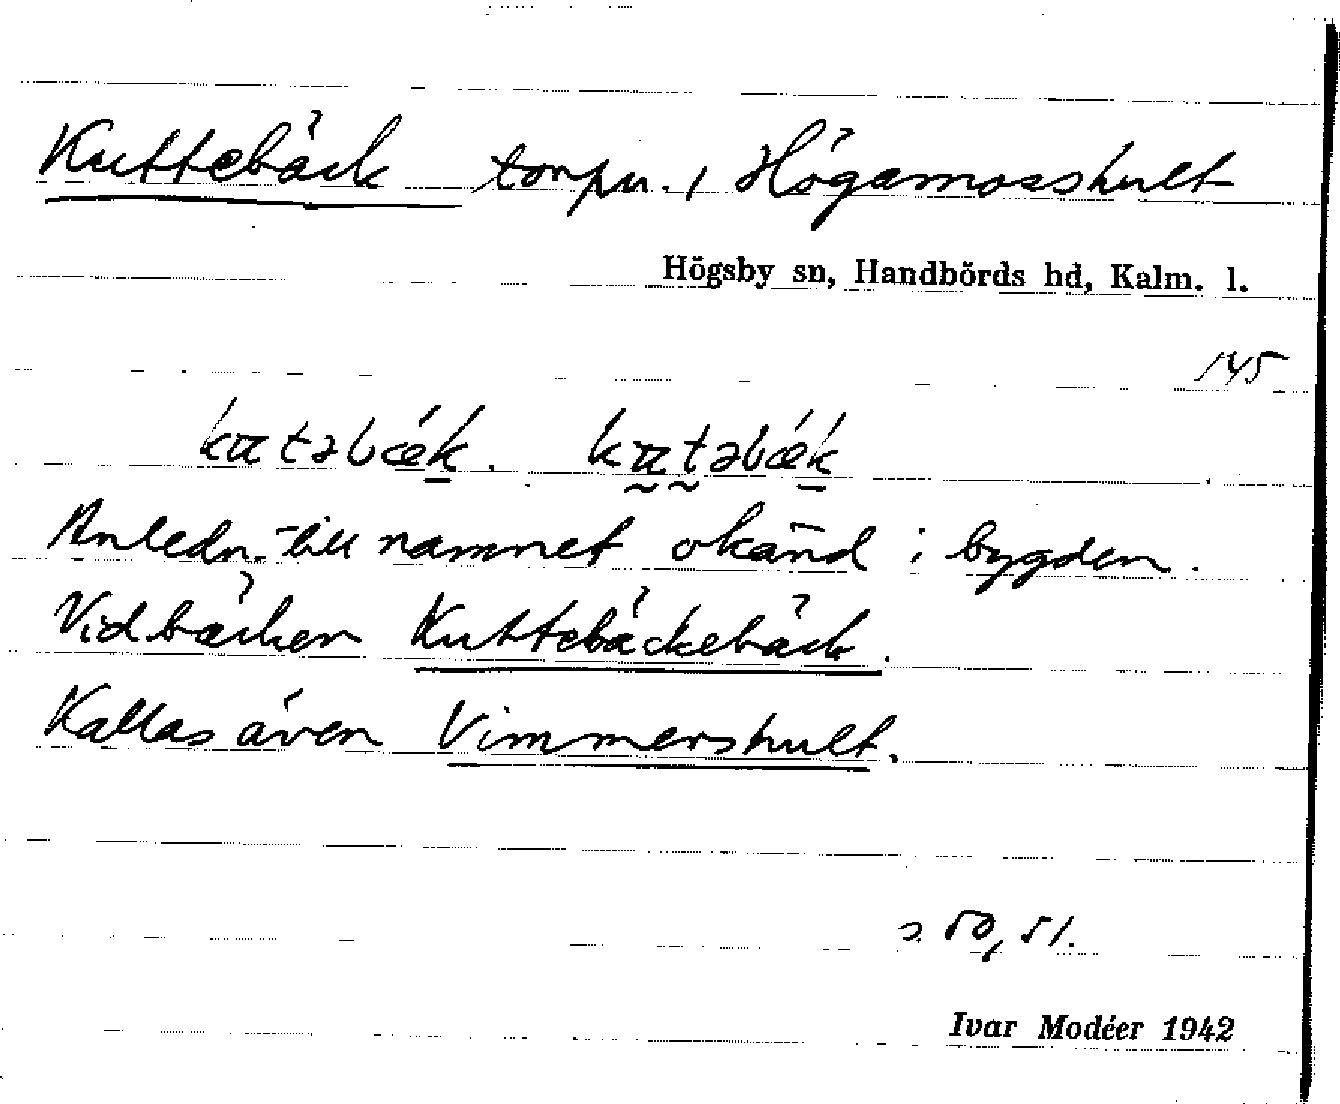 Kuttebäck torpu. i Högamosshult
Högsby sn, Handbörds hd, Kalm. l.
145
Anledn. till namnet okänd i bygden.
Vid bäcken Kuttebäckebäck.
Kallas även Vimmershult.
50, 51.
Ivar Modéer 1942